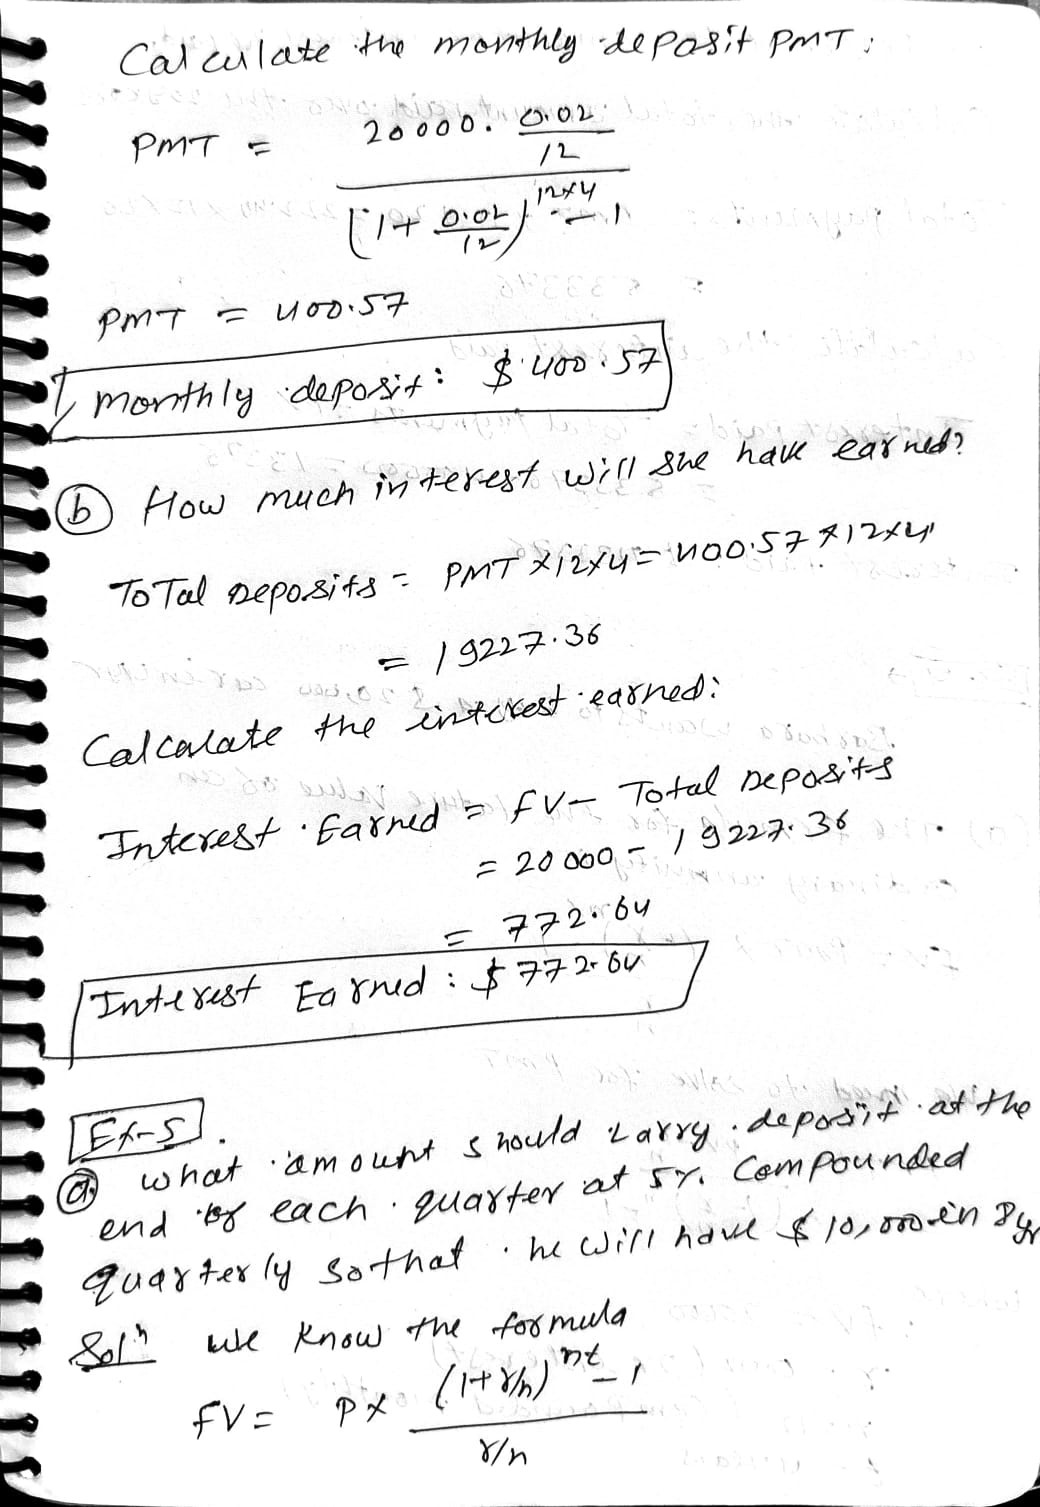 Calculate the monthly deposit PMT:
PMT = 20000. 0.02/12
(1+ 0.02/12)^12×4 - 1
PMT = 400.57
monthly deposit: $400.57
(b) How much interest will she have earned?
Total Deposits = PMT X12x4 = 400.57 X12x4
= 19227.36
Calcalate the interest earned:
Interest Earned = FV- Total Deposits
= 20000 - 19227.36
= 772.64
Interest Earned : $772.64
Ex-5.
(a) what amount should Larry deposit at the
end of each quarter at 5% Compounded
quarterly so that he will have $10,000 in 8 yr
Solⁿ We know the formula
FV = P X (1+r/n)^nt - 1
r/n